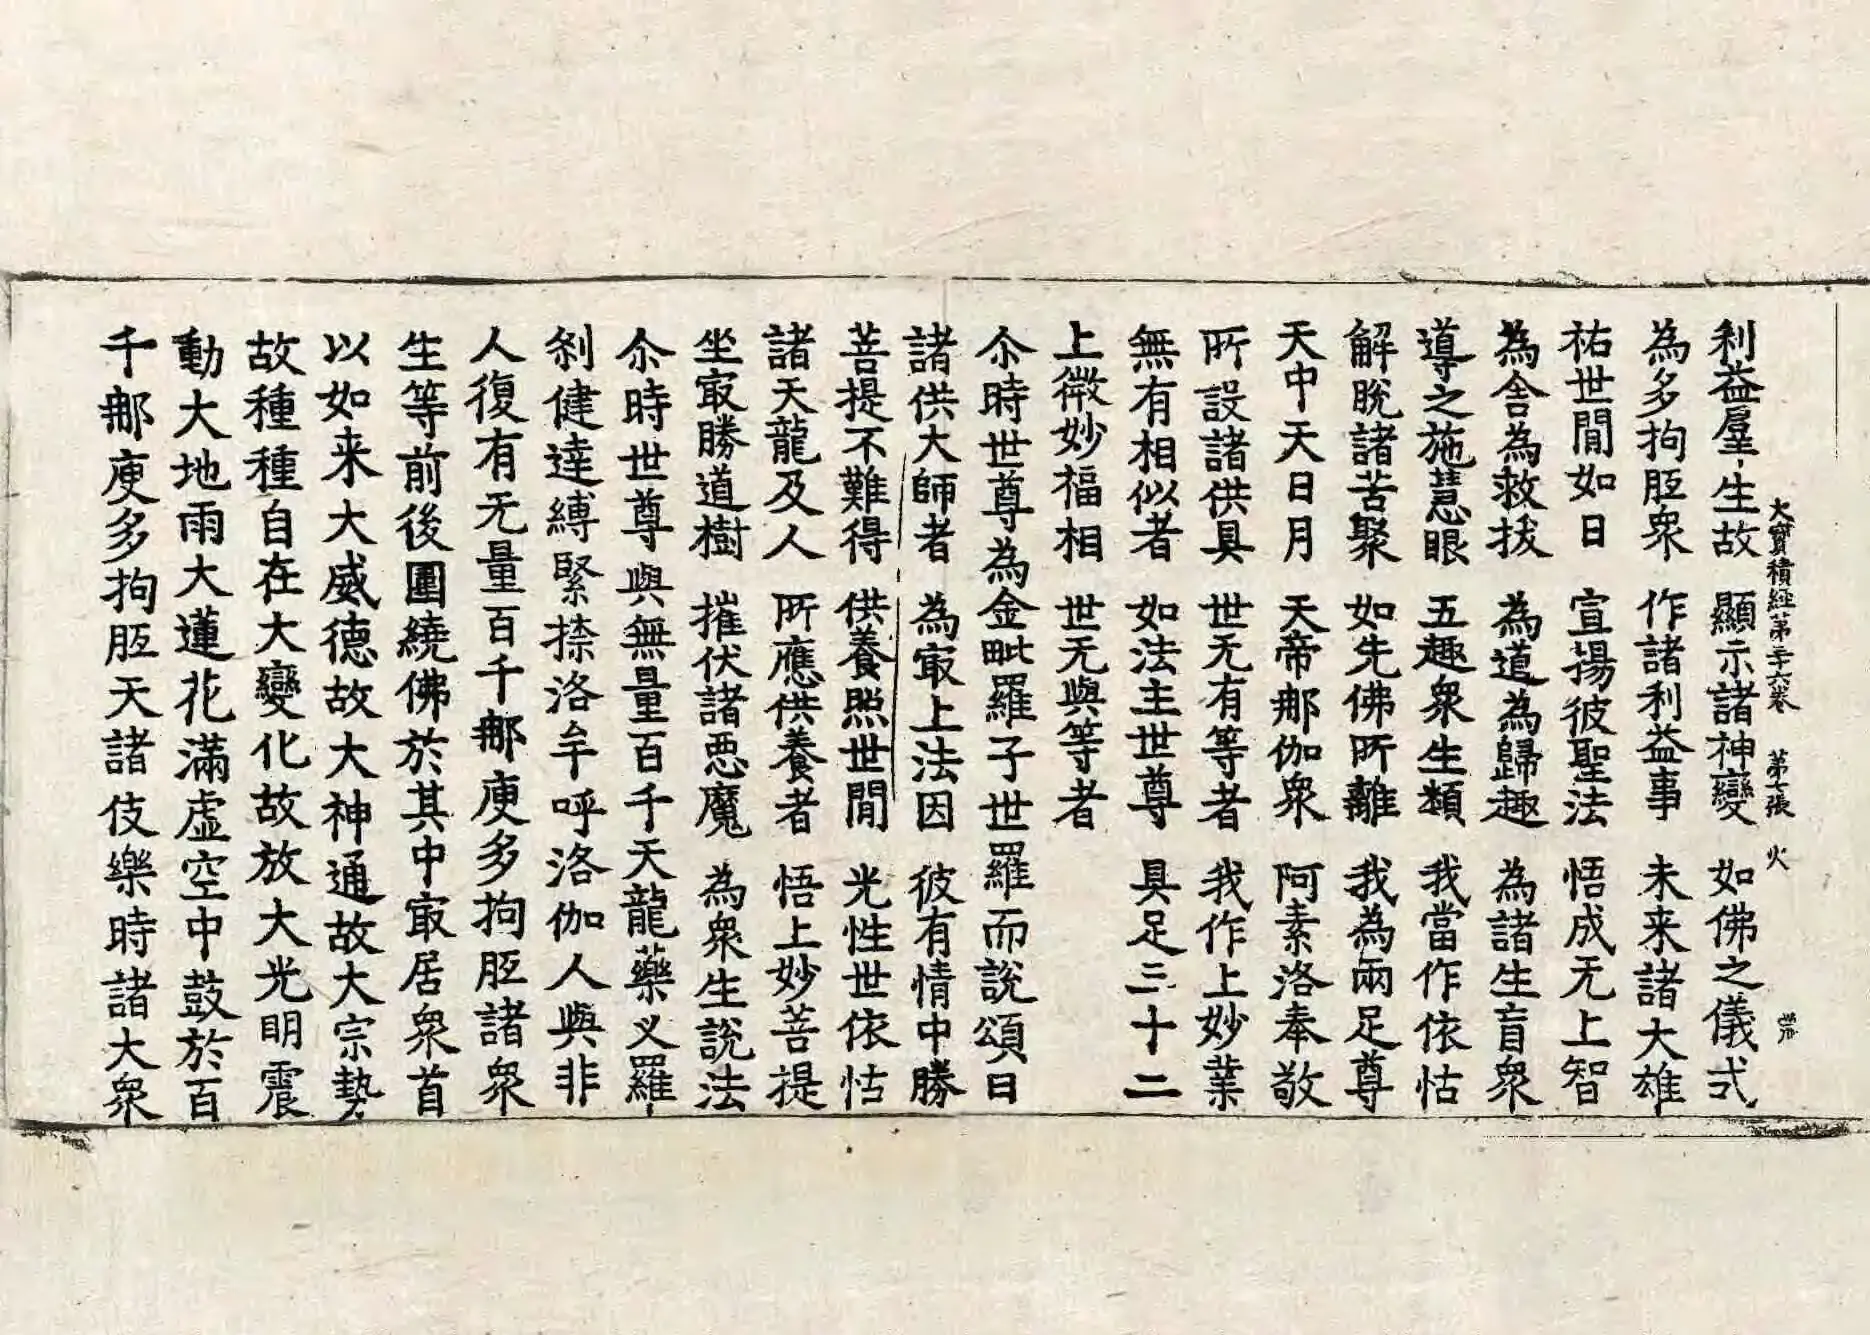 大寶積經第三十六卷 第七張 火
利益羣生故 顯示諸神變 如佛之儀式
為多拘胝衆 作諸利益事 未来諸大雄
祐世間如日 宣揚彼聖法 悟成无上智
為舍為救拔 為道為歸趣 為諸生盲衆
導之施慧眼 五趣衆生類 我當作依怙
解脫諸苦聚 如先佛所離 我為兩足尊
天中天日月 天帝那伽衆 阿素洛奉敬
所設諸供具 世无有等者 我作上妙業
無有相似者 如法主世尊 具足三十二
上微妙福相 世无與等者
尒時世尊為金毗羅子世羅而說頌曰
諸供大師者 為㝡上法因 彼有情中勝
菩提不難得 供養照世間 光性世依怙
諸天龍及人 所應供養者 悟上妙菩提
坐㝡勝道樹 摧伏諸惡魔 為衆生說法
尒時世尊與無量百千天龍藥义羅
剎健達縛緊捺洛牟呼洛伽人與非
人復有无量百千那庾多拘胝諸衆
生等前後圍繞佛於其中㝡居衆首
以如来大威德故大神通故大宗勢
故種種自在大變化故放大光明震
動大地雨大蓮花滿虛空中鼓於百
千那庾多拘胝天諸伎樂時諸大衆